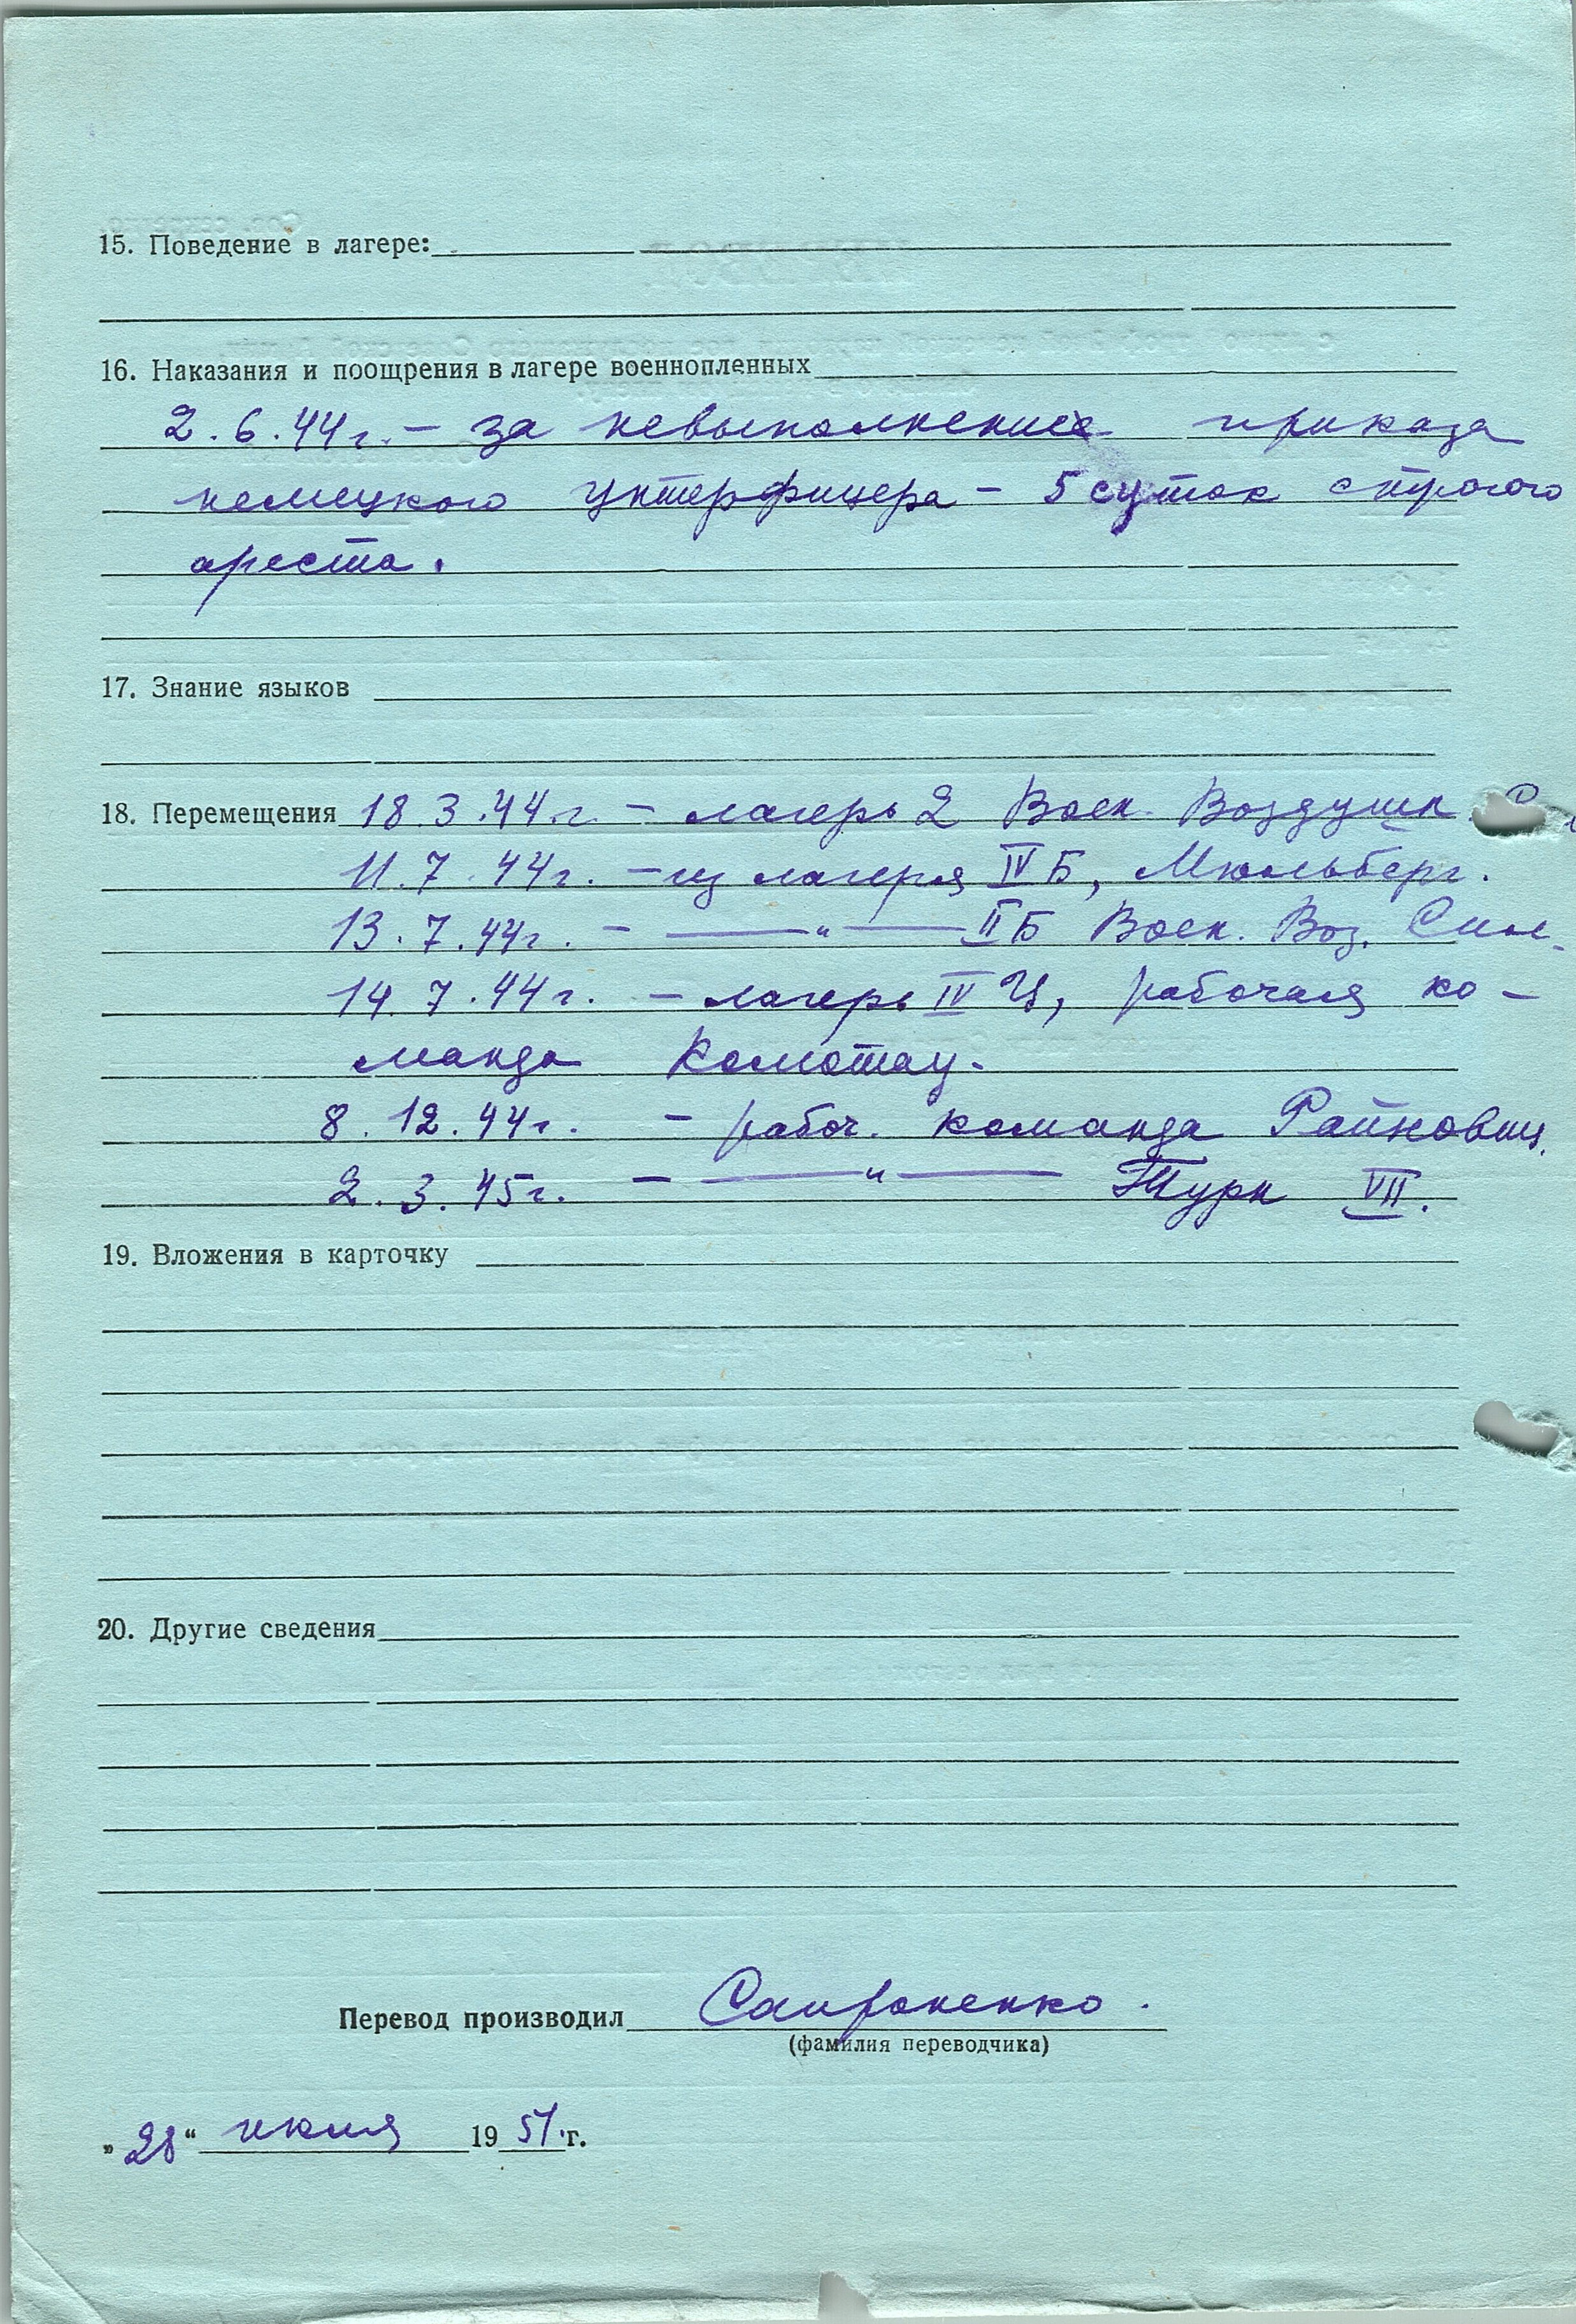 15. Поведение в лагере:
16. Наказания и поощрения в лагере военнопленных
2.6.44г. – за невыполнение приказа
немецкого унтерфицера – 5 суток строгого
ареста.
17. Знание языков
18. Перемещения 18.3.44.г. – лагерь 2 Воен. Воздушн.
11.7.44г. – из лагеря IV Б, Мюльберг.
13.7.44г. – —"— II Б Воен. Воз. Сил.
14.7.44г. – лагерь IV Ц, рабочая ко-
манда Комотау.
8.12.44г. – рабоч. команда Райновиц.
2.3.45г. – —"— Турн VII.
19. Вложения в карточку
20. Другие сведения
Перевод производил
(фамилия переводчика)
„28“ 1951.г.